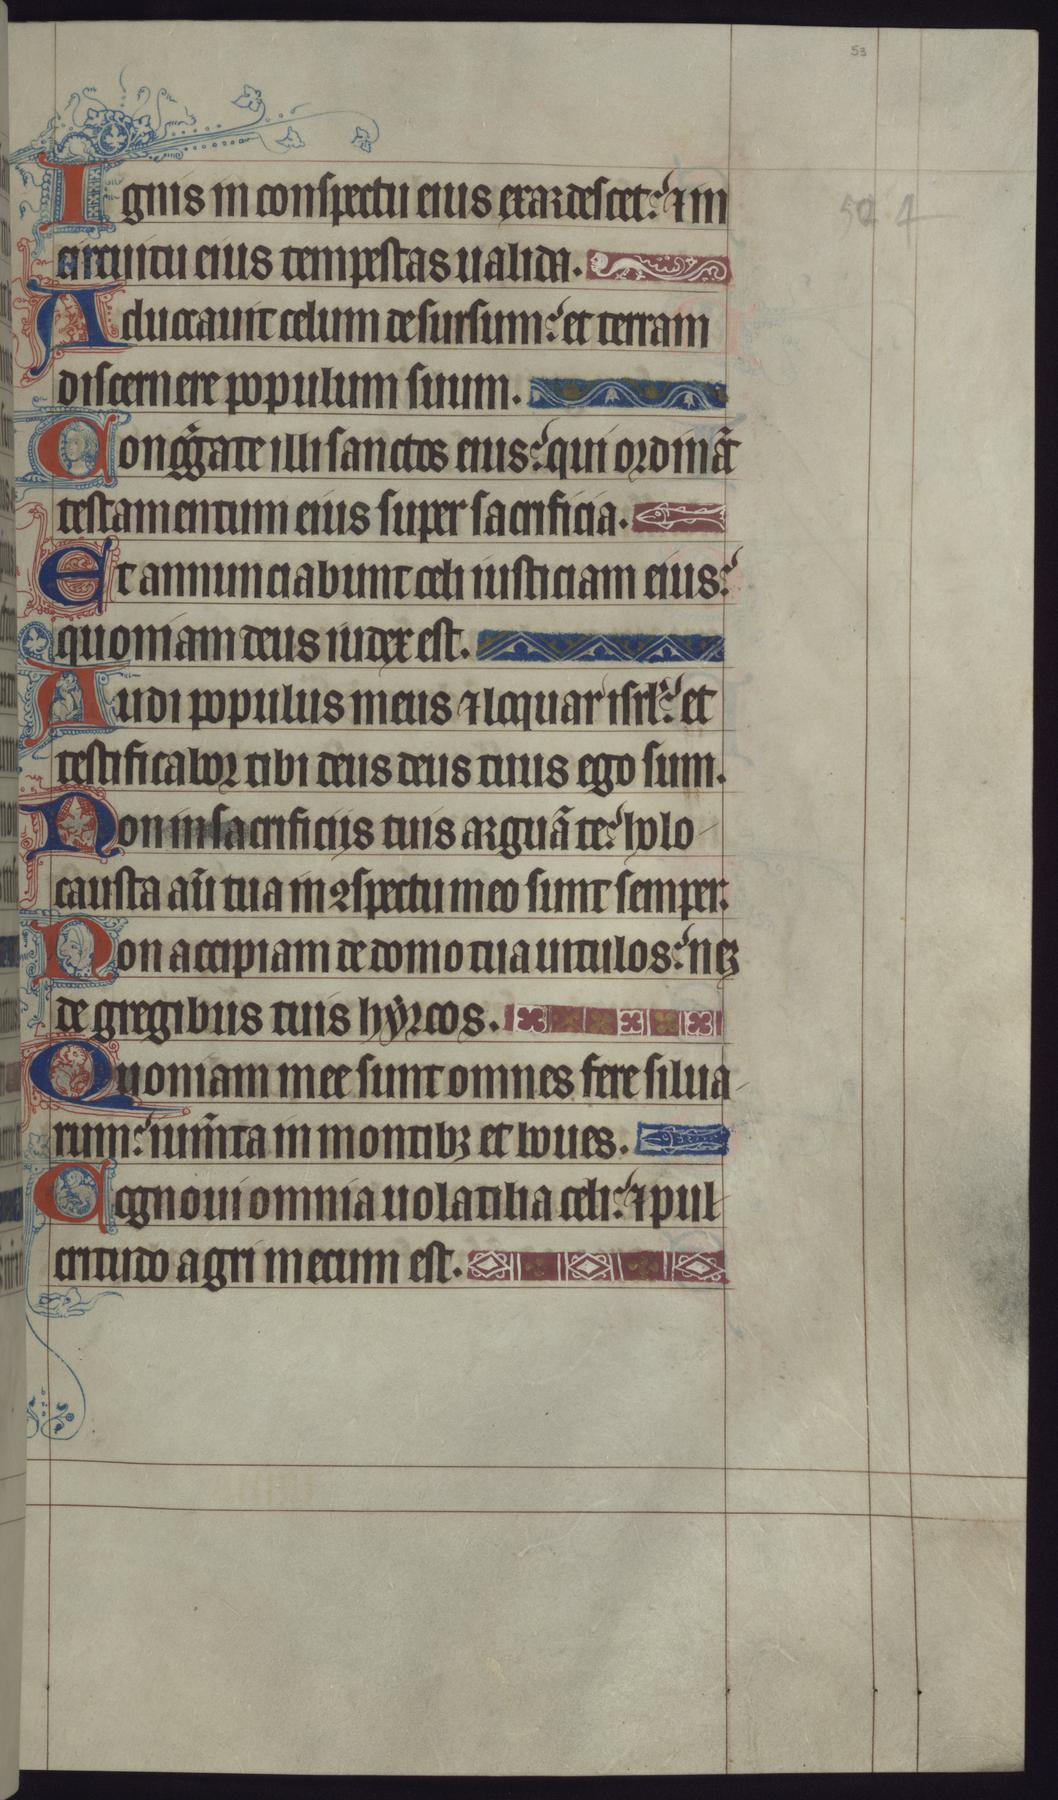 53
50 4
Ignis in conspectu eius exardescet: ⁊ in
circuitu eius tempestas ualida.
Aduocauit celum desursum: et terram
discernere populum suum.
Congͣgate illi sanctos eius: qui ordinãt
testamentum eius super sacrificia.
Et annunciabunt celi iusticiam eius:
quoniam deus iudex est.
Audi populus meus ⁊ loquar isrl̛: et
testificabor tibi deus deus tuus ego sum.
Non in sacrificiis tuis arguã te: holo
causta aũ tua in ꝯspectu meo sunt semper.
Non accipiam de domo tua uitulos: neqꝫ
de gregibus tuis hyrcos.
Quoniam mee sunt omnes fere silua
rum: ium̃ta in montibꝫ et boues.
Cognoui omnia uolatilia celi: ⁊ pul
critudo agri mecum est.